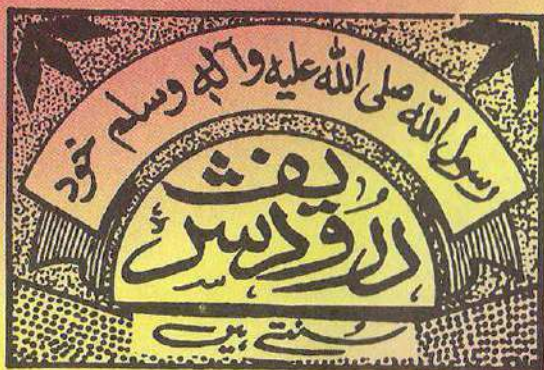 رسول اللہ صلی اللہ علیہ وآلہٖ وسلم خود
درُود شریف
سُنتے ہیں